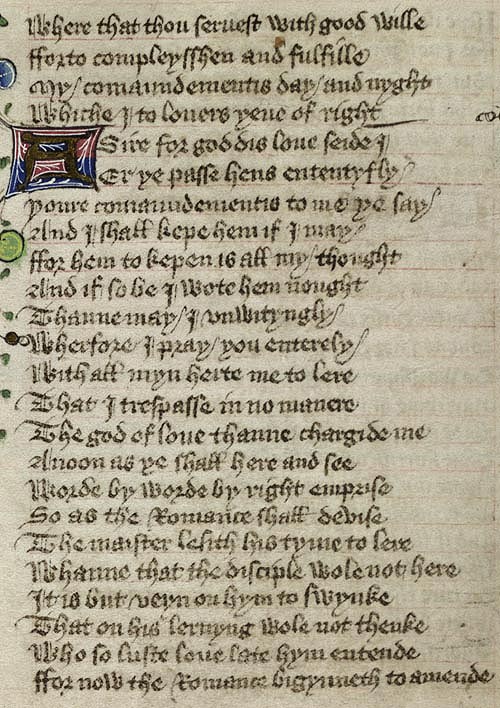 Where that thou seruest with good wille
fforto compleysshen and fulfille
My comaundementis day and nyght
Whiche I to louers yeue of right
A Sire for goddis loue seide I
Er ye passe hens ententyfly
youre comaundementis to me ye say
And I shall kepe hem if I may
ffor hem to kepen is all my thought
And if so be I wote hem nought
Thanne may I vnwityngly
Wherfore I pray you enterely
With all myn herte me to lere
That I trespasse in no manere
The god of loue thanne chargide me
Anoon as ye shall here and see
Worde by worde by right emprise
So as the Romance shall devise
The maister lesith his tyme to lere
Whanne that the disciple wole not here
It is but veyn on hym to swynke
That on his lernyng wole not thenke
Who so luste loue late hym entende
ffor now the Romance bigynneth to amende